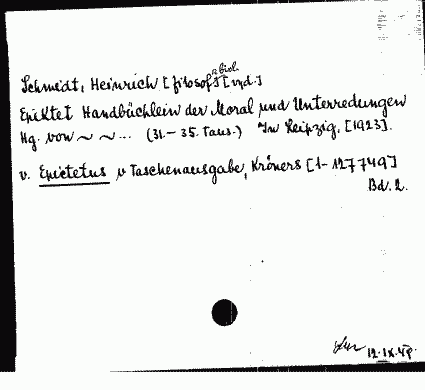 Schmidt, Heinrich [filosof i biol.] [wyd.]
Epiktet Handbüchlein der Moral und Unterredungen
Hg. von ~ ~ ... (31.–35. Taus.) Leipzig, [1923].
v. Epictetus v Taschenausgabe, Kröners [1–127749]
Bd. 2.
12.IX.48.